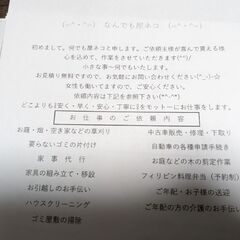 (=^・^=) なんでも屋ネコ (=^・^=)
初めまして。何でも屋ネコと申します。ご依頼主様が喜んで貰える様
心を込めて、作業をさせていただきます(^^)/
小さな事～何でもいたします。
お見積り無料ですので、お気軽にお問い合わせください(^_-)-☆
女性も働いてますので、ご安心ください。
依頼内容は下記を参照下さい(*^^*)
どこよりも!安く・早く・安心・丁寧に!をモットーにお仕事をします。
お仕事のご依頼内容
お庭・畑・空き家などの草刈り 中古車販売・修理・下取り
要らないゴミの片付け 自動車の各種申請手続き
家事代行 お庭などの木の剪定作業
家具の組み立て・移設 フィリピン料理弁当（予約制）
お引越しのお手伝い ご年配・お子様の送迎
ハウスクリーニング ご年配の方の介護のお手伝い
ゴミ屋敷の掃除